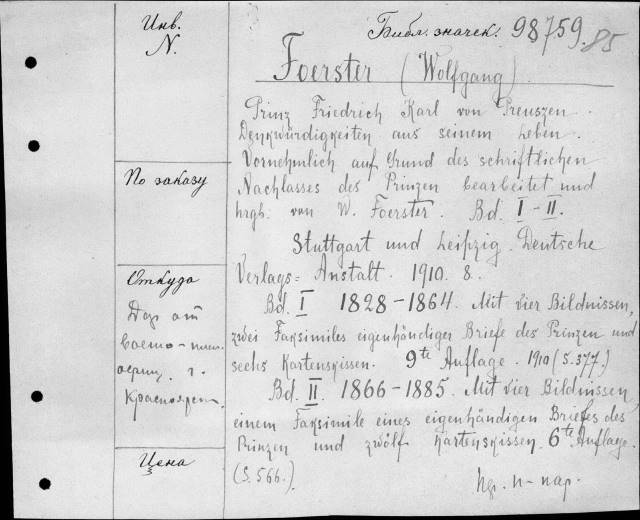 Инв.
N.
Библ. значек. 98759
85
Foerster (Wolfgang)
Prinz Friedrich Karl von Preuszen.
Denkwürdigkeiten aus seinem Leben.
Vornehmlich auf Grund des schriftlichen
Nachlasses des Prinzen bearbeitet und
hrgb. von W. Foerster. Bd. I-II.
Stuttgart und Leipzig. Deutsche
Verlags=Anstalt. 1910. 8.
Bd. I 1828-1864. Mit vier Bildnissen,
zwei Faksimiles eigenhändiger Briefe des Prinzen und
sechs Kartenskissen. 9te Auflage. 1910 (S. 377.)
Bd. II. 1866-1885. Mit vier Bildnissen,
einem Faksimile eines eigenhändigen Briefes des
Prinzen und zwölf Kartenskissen. 6te Auflage.
(S. 566.)
По заказу
Откуда
Дар от
г.
Красноярск.
Цена